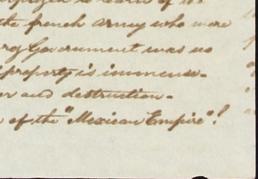 the french army who were
Government was no
property is immense.
and destruction.
of the "Mexican Empire"!